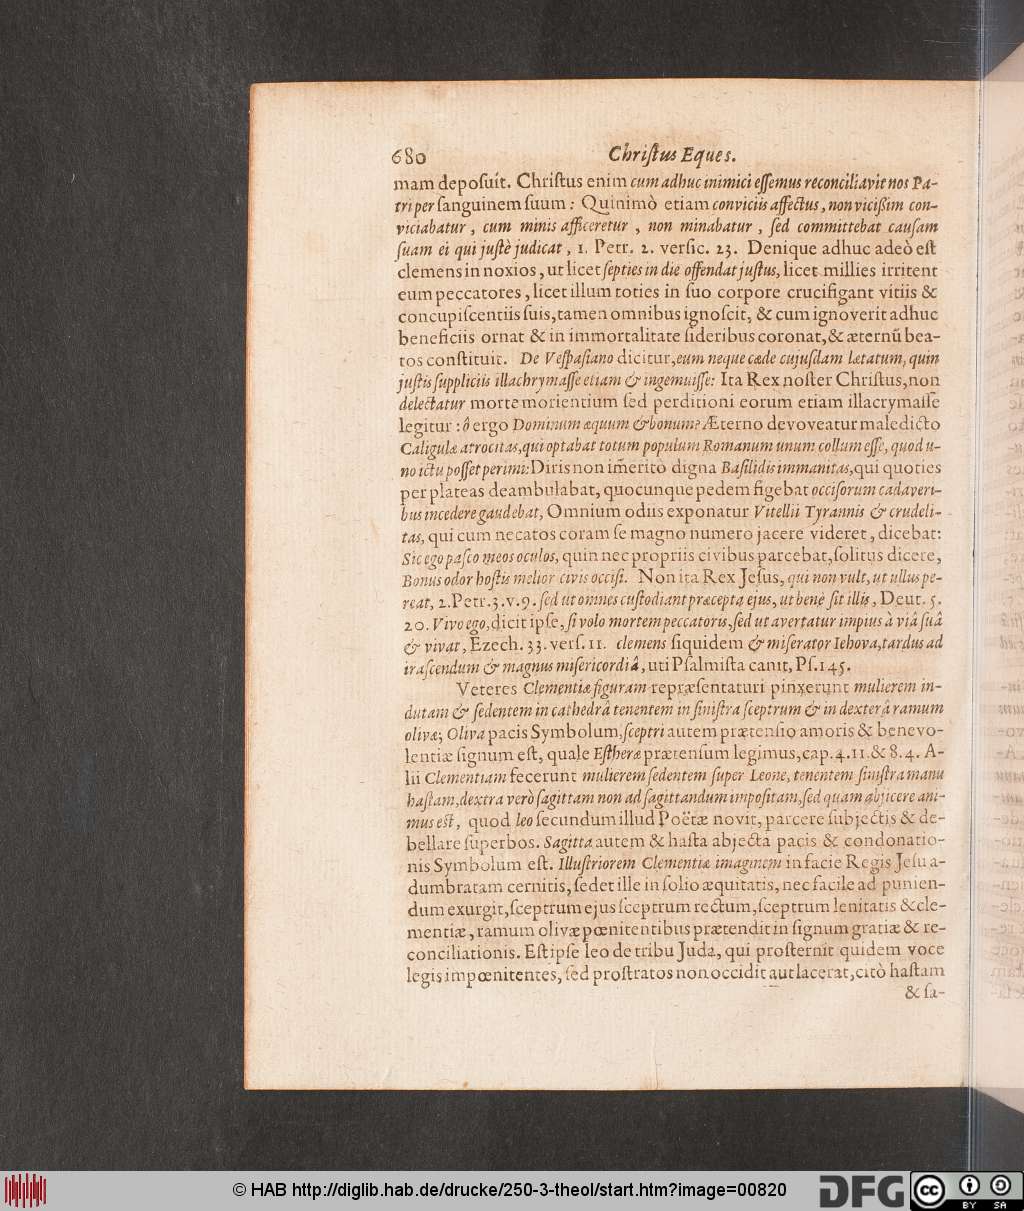 680 Chriſtus Eques.
mam depoſuit. Chriſtus enim cum adhuc inimici eſſemus reconciliavit nos Pa-
tri per ſanguinem ſuum: Quinimò etiam conviciis affectus, non viciſſim con-
viciabatur, cum minis afficeretur, non minabatur, ſed committebat cauſam
ſuam ei qui juſtè judicat, 1. Petr. 2. verſic. 23. Denique adhuc adeò eſt
clemens in noxios, ut licet ſepties in die offendat juſtus, licet millies irritent
eum peccatores, licet illum toties in ſuo corpore crucifigant vitiis &
concupiſcentiis ſuis, tamen omnibus ignoſcit, & cum ignoverit adhuc
beneficiis ornat & in immortalitate ſideribus coronat, & æternũ bea-
tos conſtituit. De Veſpaſiano dicitur, eum neque cæde cujuſdam lætatum, quin
juſtis ſuppliciis illachrymaſſe etiam & ingemuiſſe: Ita Rex noſter Chriſtus, non
delectatur morte morientium ſed perditioni eorum etiam illacrymaſſe
legitur: ô ergo Dominum æquum & bonum? Æterno devoveatur maledicto
Caligulæ atrocitas, qui optabat totum populum Romanum unum collum eſſe, quod u-
no ictu poſſet perimi: Diris non im̃eritò digna Baſilidis immanitas, qui quoties
per plateas deambulabat, quocunque pedem figebat occiſorum cadaveri-
bus incedere gaudebat, Omnium odiis exponatur Vitellii Tyrannis & crudeli-
tas, qui cum necatos coram ſe magno numero jacere videret, dicebat:
Sic ego paſco meos oculos, quin nec propriis civibus parcebat, ſolitus dicere,
Bonus odor hoſtis melior civis occiſi. Non ita Rex Jeſus, qui non vult, ut ullus pe-
reat, 2. Petr. 3. v. 9. ſed ut omnes cuſtodiant præcepta ejus, ut benè ſit illis, Deut. 5.
20. Vivo ego, dicit ipſe, ſi volo mortem peccatoris, ſed ut avertatur impius à viâ ſuâ
& vivat, Ezech. 33. verſ. 11. clemens ſiquidem & miſerator Iehova, tardus ad
iraſcendum & magnus miſericordiâ, uti Pſalmiſta canit, Pſ. 145.
Veteres Clementiæ figuram repræſentaturi pinxerunt mulierem in-
dutam & ſedentem in cathedrâ tenentem in ſiniſtra ſceptrum & in dexterâ ramum
olivæ; Oliva pacis Symbolum, ſceptri autem prætenſio amoris & benevo-
lentiæ ſignum eſt, quale Eſtheræ prætenſum legimus, cap. 4. 11. & 8. 4. A-
lii Clementiam fecerunt mulierem ſedentem ſuper Leone, tenentem ſiniſtra manu
haſtam, dextra verò ſagittam non ad ſagittandum impoſitam, ſed quam abjicere ani-
mus eſt, quod leo ſecundum illud Poëtæ novit, parcere ſubjectis & de-
bellare ſuperbos. Sagitta autem & haſta abjecta pacis & condonatio-
nis Symbolum eſt. Illuſtriorem Clementiæ imaginem in facie Regis Jeſu a-
dumbratam cernitis, ſedet ille in ſolio æquitatis, nec facile ad punien-
dum exurgit, ſceptrum ejus ſceptrum rectum, ſceptrum lenitatis & cle-
mentiæ, ramum olivæ pœnitentibus prætendit in ſignum gratiæ & re-
conciliationis. Eſt ipſe leo de tribu Juda, qui proſternit quidem voce
legis impœnitentes, ſed proſtratos non occidit aut lacerat, citò haſtam
& ſa-
© HAB http://diglib.hab.de/drucke/250-3-theol/start.htm?image=00820
DFG
cc BY SA